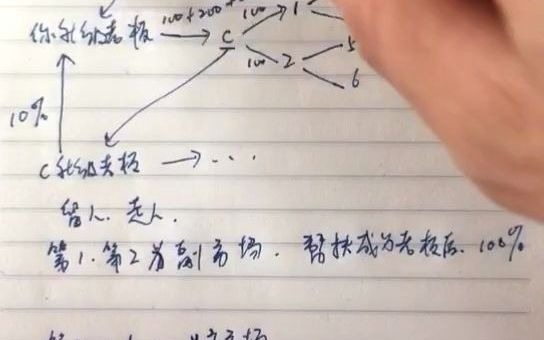 你升级老板 100+200+ C 100 1
100 2 5
6
10%
C升级老板 → . . .
留人. 走人.
第1. 第2为副市场. 帮扶成为老板后. 100%